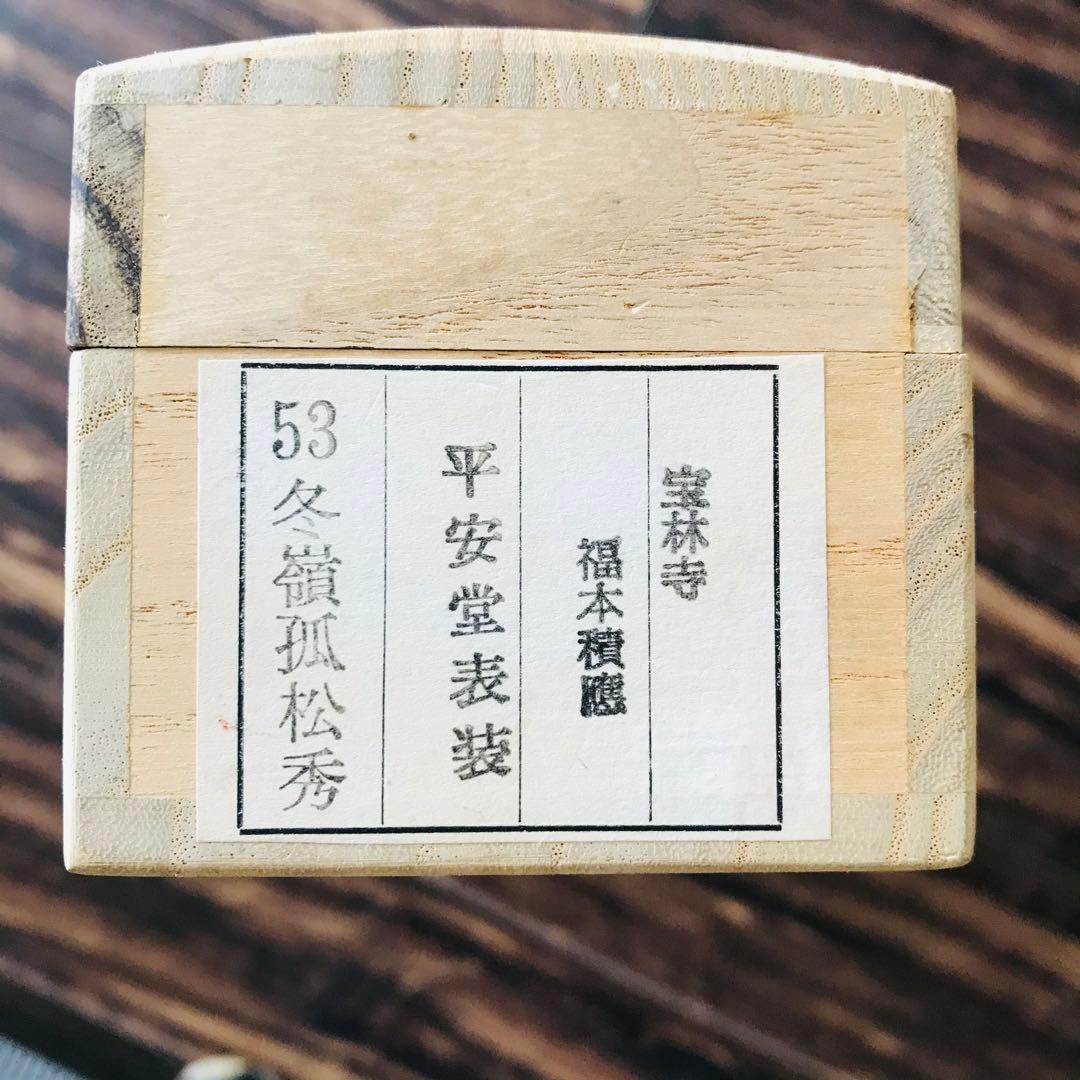 宝林寺
福本積應
平安堂表装
53冬嶺孤松秀